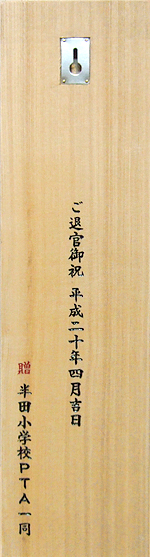 ご退官御祝 平成二十年四月吉日
贈 半田小学校PTA一同